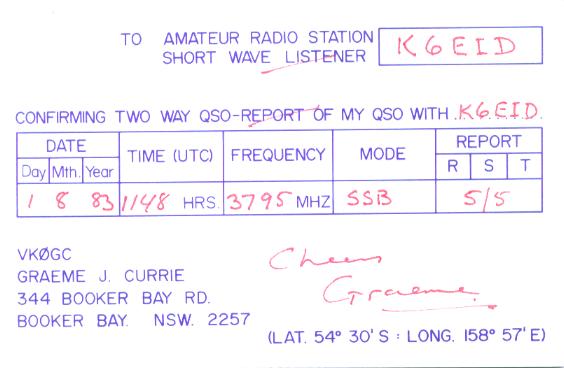 TO AMATEUR RADIO STATION K6EID
SHORT WAVE LISTENER
CONFIRMING TWO WAY QSO-REPORT OF MY QSO WITH K6EID.
DATE TIME (UTC) FREQUENCY MODE REPORT
Day Mth. Year R S T
1 8 83 1148 HRS. 3795 MHZ SSB 5/5
VKØGC
GRAEME J. CURRIE
344 BOOKER BAY RD.
BOOKER BAY. NSW. 2257
Cheers
Graeme.
(LAT. 54° 30' S : LONG. 158° 57' E)